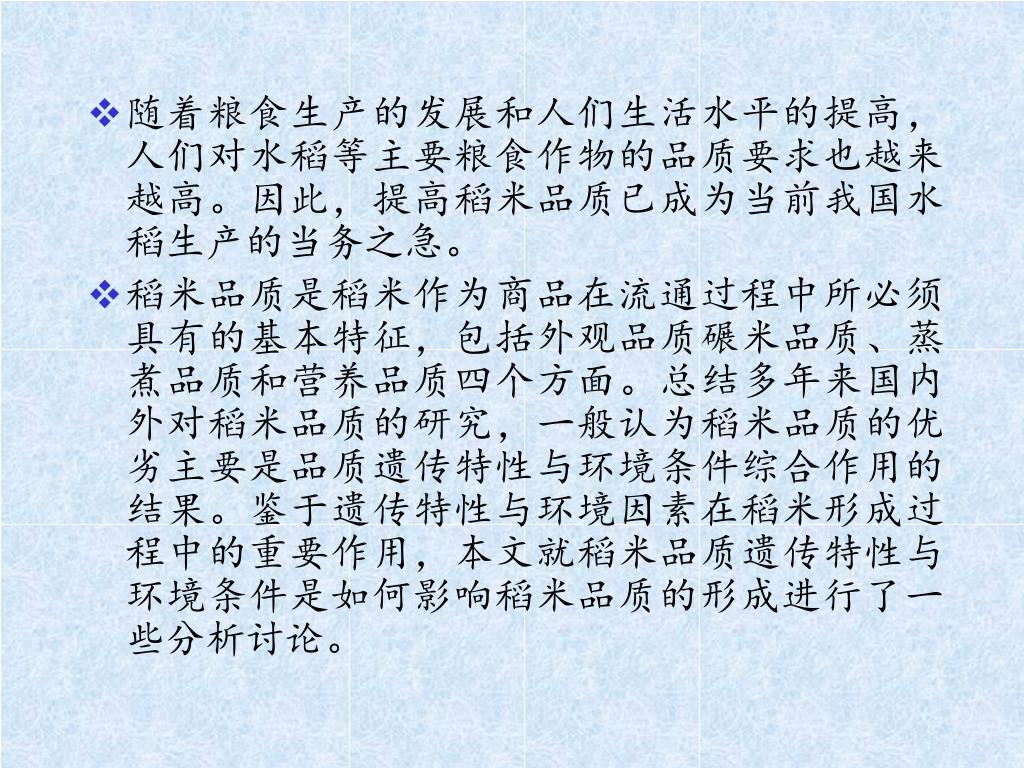 随着粮食生产的发展和人们生活水平的提高，
人们对水稻等主要粮食作物的品质要求也越来
越高。因此，提高稻米品质已成为当前我国水
稻生产的当务之急。
稻米品质是稻米作为商品在流通过程中所必须
具有的基本特征，包括外观品质碾米品质、蒸
煮品质和营养品质四个方面。总结多年来国内
外对稻米品质的研究，一般认为稻米品质的优
劣主要是品质遗传特性与环境条件综合作用的
结果。鉴于遗传特性与环境因素在稻米形成过
程中的重要作用，本文就稻米品质遗传特性与
环境条件是如何影响稻米品质的形成进行了一
些分析讨论。